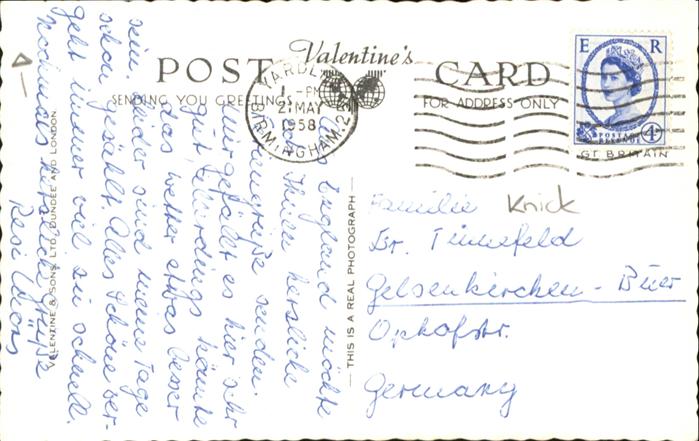 Valentine's
POST CARD
SENDING YOU GREETINGS
FOR ADDRESS ONLY
YARDLEY
1 - PM
21 MAY
1958
BIRMINGHAM. 2
E R
POSTAGE
REVENUE
4D
GT BRITAIN
England möchte
Ihnen herzliche
Urlaubsgrüße senden.
Mir gefällt es hier sehr
gut, allerdings könnte
das Wetter etwas besser
sein. Leider sind meine Tage
schon gezählt. Alles Schöne ver-
geht immer viel zu schnell.
Nochmals herzliche Grüße
Resi
THIS IS A REAL PHOTOGRAPH
VALENTINE & SONS, LTD., DUNDEE AND LONDON
Familie Knick
Br.
Gelsenkirchen - Buer
Ophofstr.
Germany